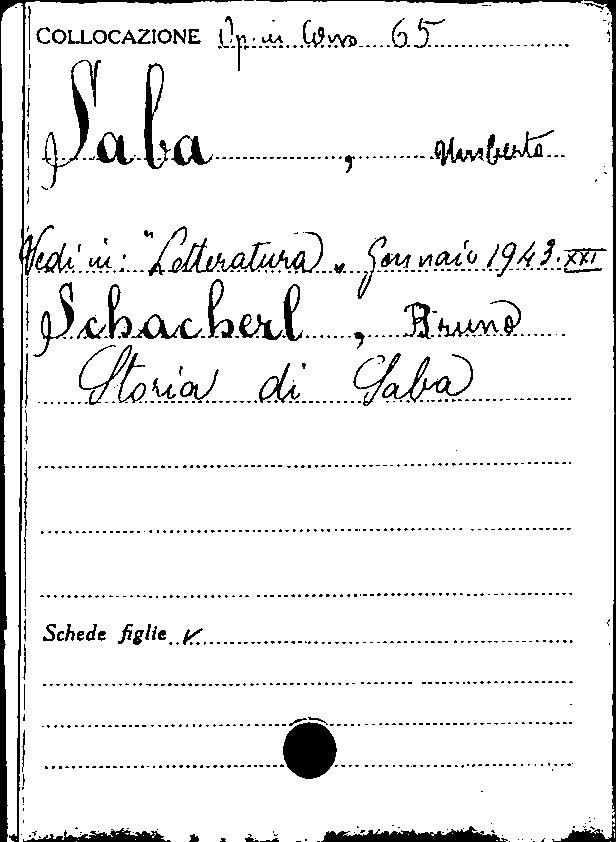 COLLOCAZIONE Op. in Corso 65
Saba, Umberto
Vedi in: "Letteratura" Gennaio 1943. XXI
Schacherl, Bruno
Storia di Saba
Schede figlie ✓